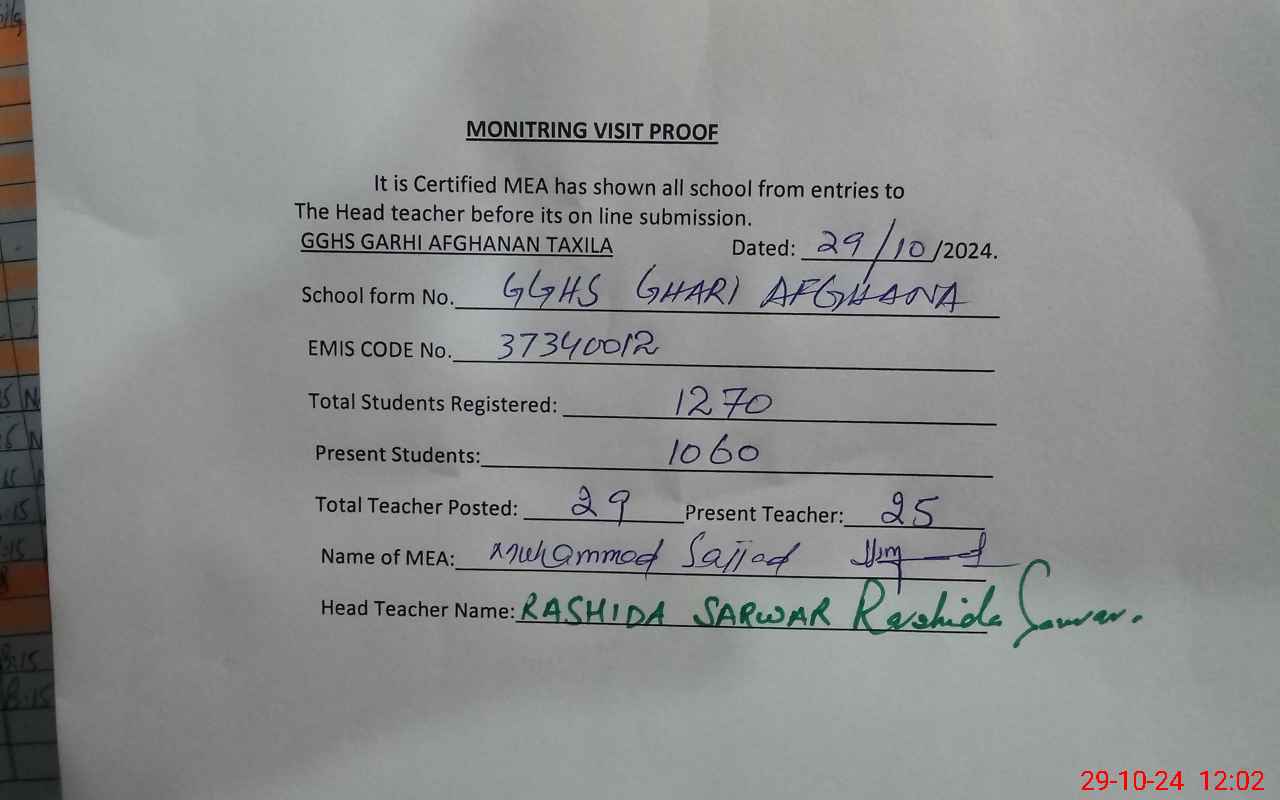 MONITRING VISIT PROOF
It is Certified MEA has shown all school from entries to
The Head teacher before its on line submission.
GGHS GARHI AFGHANAN TAXILA Dated: 29/10/2024.
School form No. GGHS GHARI AFGHANA
EMIS CODE No. 37340012
Total Students Registered: 1270
Present Students: 1060
Total Teacher Posted: 29 Present Teacher: 25
Name of MEA: Muhammad Sajjad
Head Teacher Name: RASHIDA SARWAR Rashida Sarwar.
29-10-24 12:02